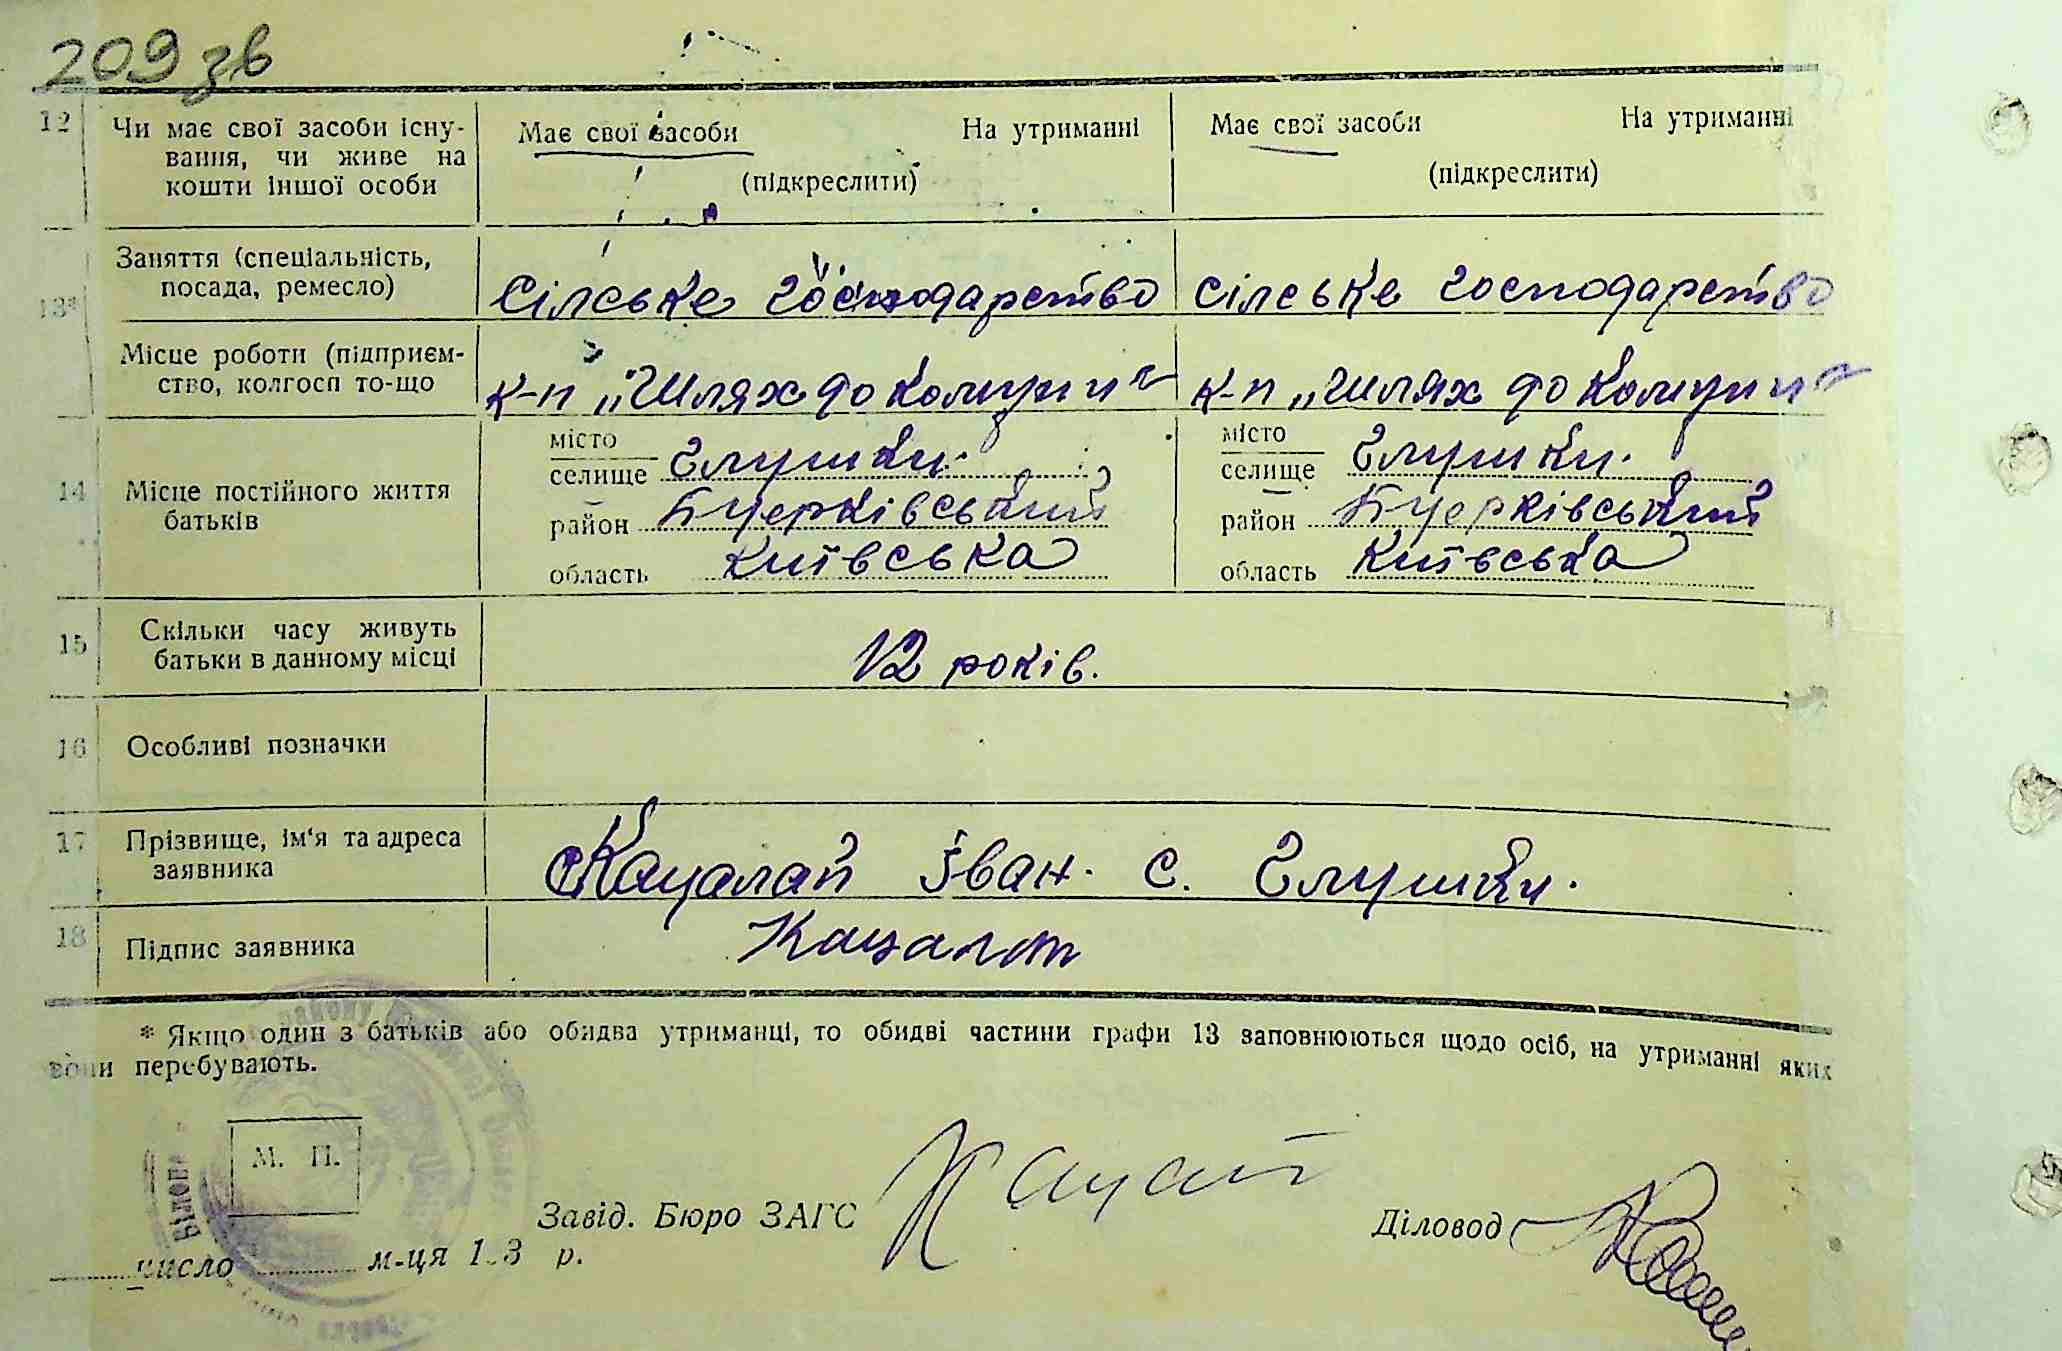 209 зв
12 Чи має свої засоби існу- Має свої засоби На утриманні Має свої засоби На утриманні
вання, чи живе на
кошти іншої особи (підкреслити) (підкреслити)
Заняття (спеціальність,
13* посада, ремесло) Сілське господарство сілське господарство
Місце роботи (підприєм-
ство, колгосп то-що к-п „Шлях до комуни" к-п „Шлях до комуни"
місто місто
селище Глушки. селище Глушки.
14 Місце постійного життя
батьків район район
область Київська область Київська
15 Скільки часу живуть
батьки в данному місці 12 років.
16 Особливі позначки
17 Прізвище, ім'я та адреса
заявника Кацалап Іван. с. Глушки.
18 Підпис заявника Кацалап
* Якщо один з батьків або обидва утриманці, то обидві частини графи 13 заповнюються щодо осіб, на утриманні яких
вони перебувають.
М. П.
Завід. Бюро ЗАГС Діловод
число м-ця 193 р.